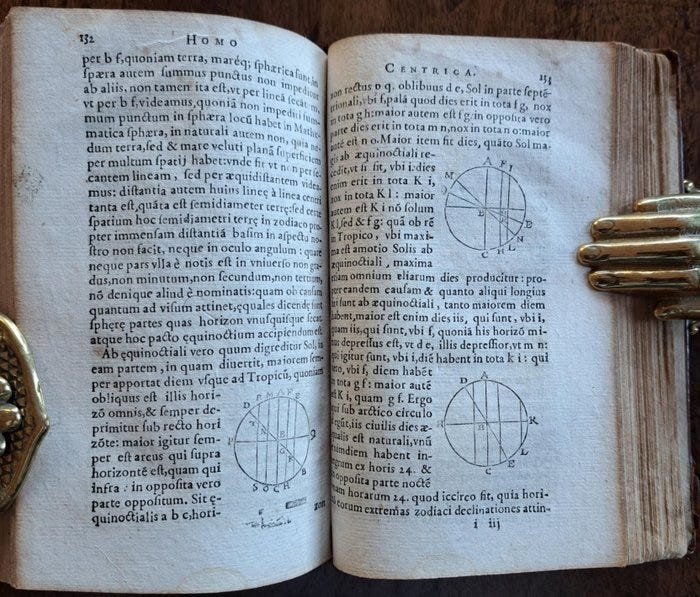 152 HOMO
per b f, quoniam terra, maréq; sphærica sunt, im
spæra autem summus punctus non impeditur
ab aliis, non tamen ita est, vt per lineã secãt. m,
vt per b f, videamus, quoniã non impediri sum-
mum punctum in sphæra locũ habet in Mathe-
matica sphæra, in naturali autem non, quia ne-
dum terra, sed & mare veluti planã superficiem
per multum spatij habet: vnde fit vt non per se-
cantem lineam, sed per æquidistantem videa-
mus: distantia autem huius lineę à linea centri
tanta est, quãta est semidiameter terrę: sed certe
spatium hoc semidiametri terrę in zodiaco pro
pter immensam distantiã basim in aspectu no-
stro non facit, neque in oculo angulum: quare
neque pars vlla è notis est in vniuerso non gra-
dus, non minutum, non secundum, non tertium,
nõ denique aliud è nominatis: quam ob causam
quantum ad visum attinet, ęquales dicende sunt
sphęrę partes quas horizon vnusquisque secat,
atque hoc pacto ęquinoctium accipiendum est.
Ab ęquinoctiali vero quum digreditur Sol, in
eam partem, in quam diuertit, maiorem sem-
per apportat diem vsque ad Tropicũ, quoniam
obliquus est illis hori-
zõ omnis, & semper de-
primitur sub recto hori
zõte: maior igitur sem-
per est arcus qui supra
horizontẽ est, quam qui
infra: in opposita vero
parte oppositum. Sit ę-
quinoctialis a b c, hori-
zon
CENTRICA. 153
non rectus p q, oblibuus d e, Sol in parte septẽ-
trionali, vbi f, palã quod dies erit in tota f g, nox
in tota g h: maior autem est f g: in opposita vero
parte dies erit in tota m n, nox in tota n o: maior
autẽ est n o. Maior item fit dies, quãto Sol ma-
gis ab æquinoctiali re-
cedit, vt si sit, vbi i: dies
enim erit in tota K i,
nox in tota K l: maior
autem est K i nõ solum
K l, sed & f g: quã ob rẽ
in Tropico, vbi maxi-
ma est amotio Solis ab
æquinoctiali, maxima
etiam omnium aliarum dies producitur: pro-
pter eandem causam & quanto aliqui longius
siti sunt ab æquinoctiali, tanto maiorem diem
habent, maior est enim dies iis, qui sunt, vbi i,
quam iis, qui sunt, vbi f, quoniã his horizõ mi-
nus depressus est, vt d e, illis depressior, vt m n:
qui igitur sunt, vbi i, diẽ habent in tota k i: qui
vero, vbi f, diem habẽt
in tota g f: maior autẽ
est K i, quam g f. Ergo
qui sub arctico circulo
degũt, iis ciuilis dies æ-
qualis est naturali, vnũ
enimdiem habent in-
tegrum ex horis 24. &
in opposita parte noctẽ
quam horarum 24. quod iccirco fit, quia hori-
zõ eorum extremas zodiaci declinationes attin-
i iij